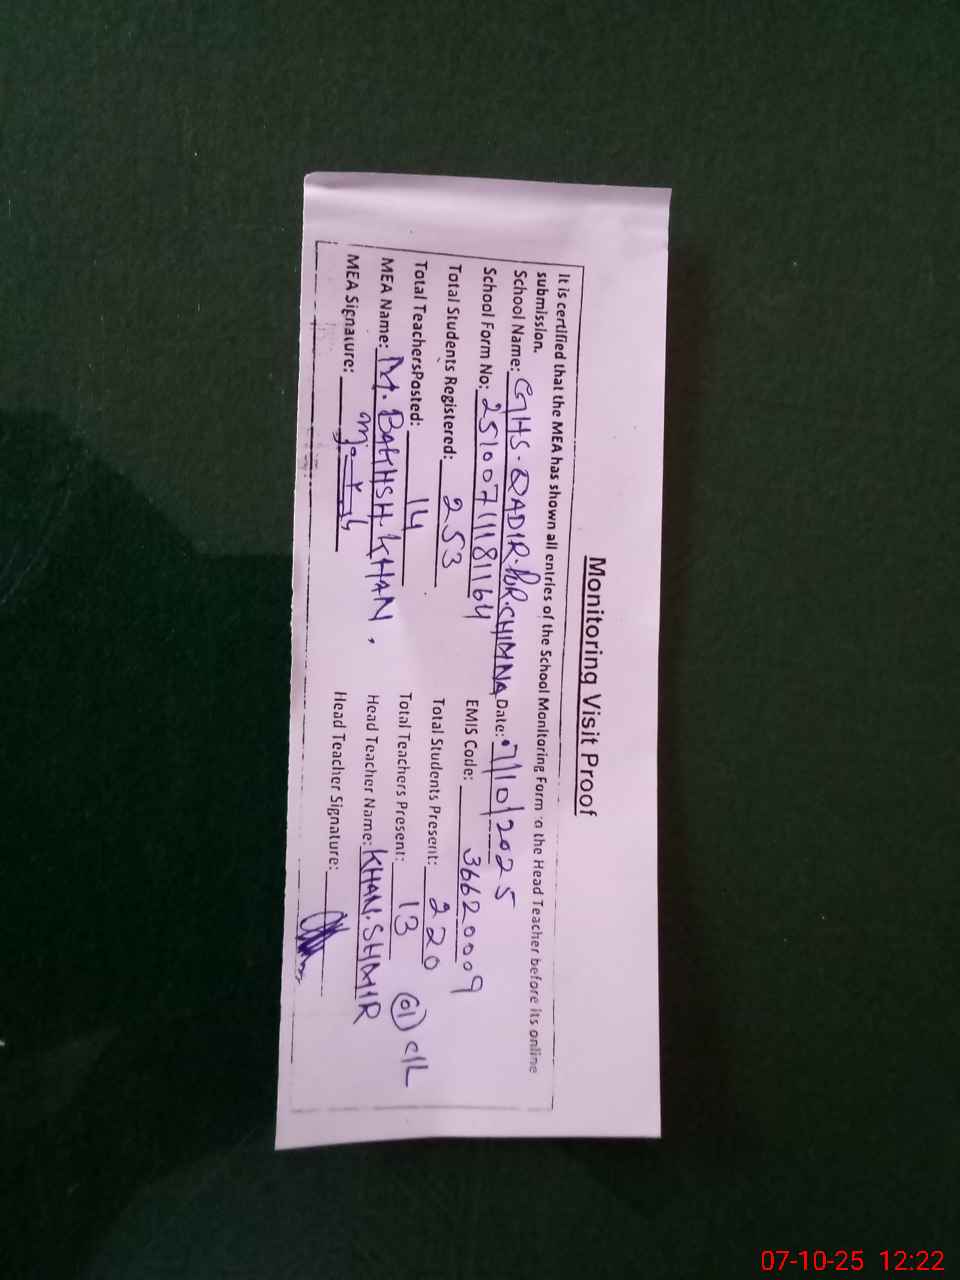 Monitoring Visit Proof
It is certified that the MEA has shown all entries of the School Monitoring Form to the Head Teacher before its online
submission.
School Name: GHS. QADIR. POR. CHIMNA Date: 7/10/2025
School Form No: 2510071181164 EMIS Code: 36620009
Total Students Registered: 253 Total Students Present: 220
Total TeachersPosted: 14 Total Teachers Present: 13 (01) C/L
MEA Name: M. BAKHSH. KHAN. Head Teacher Name: KHAN. SHMIR
MEA Signature: Head Teacher Signature:
07-10-25 12:22